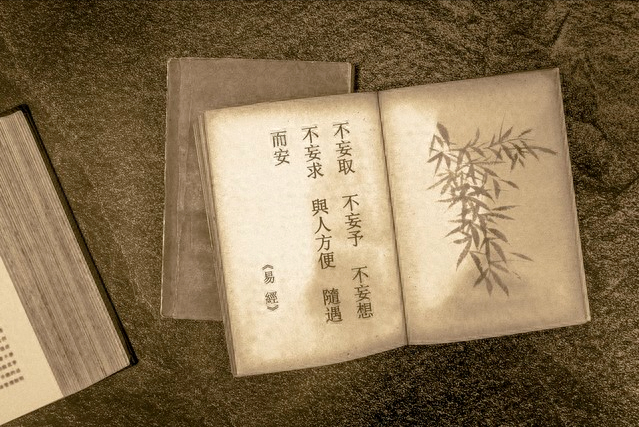 不妄取　不妄予　不妄想
不妄求　與人方便　隨遇
而安
《易 經》